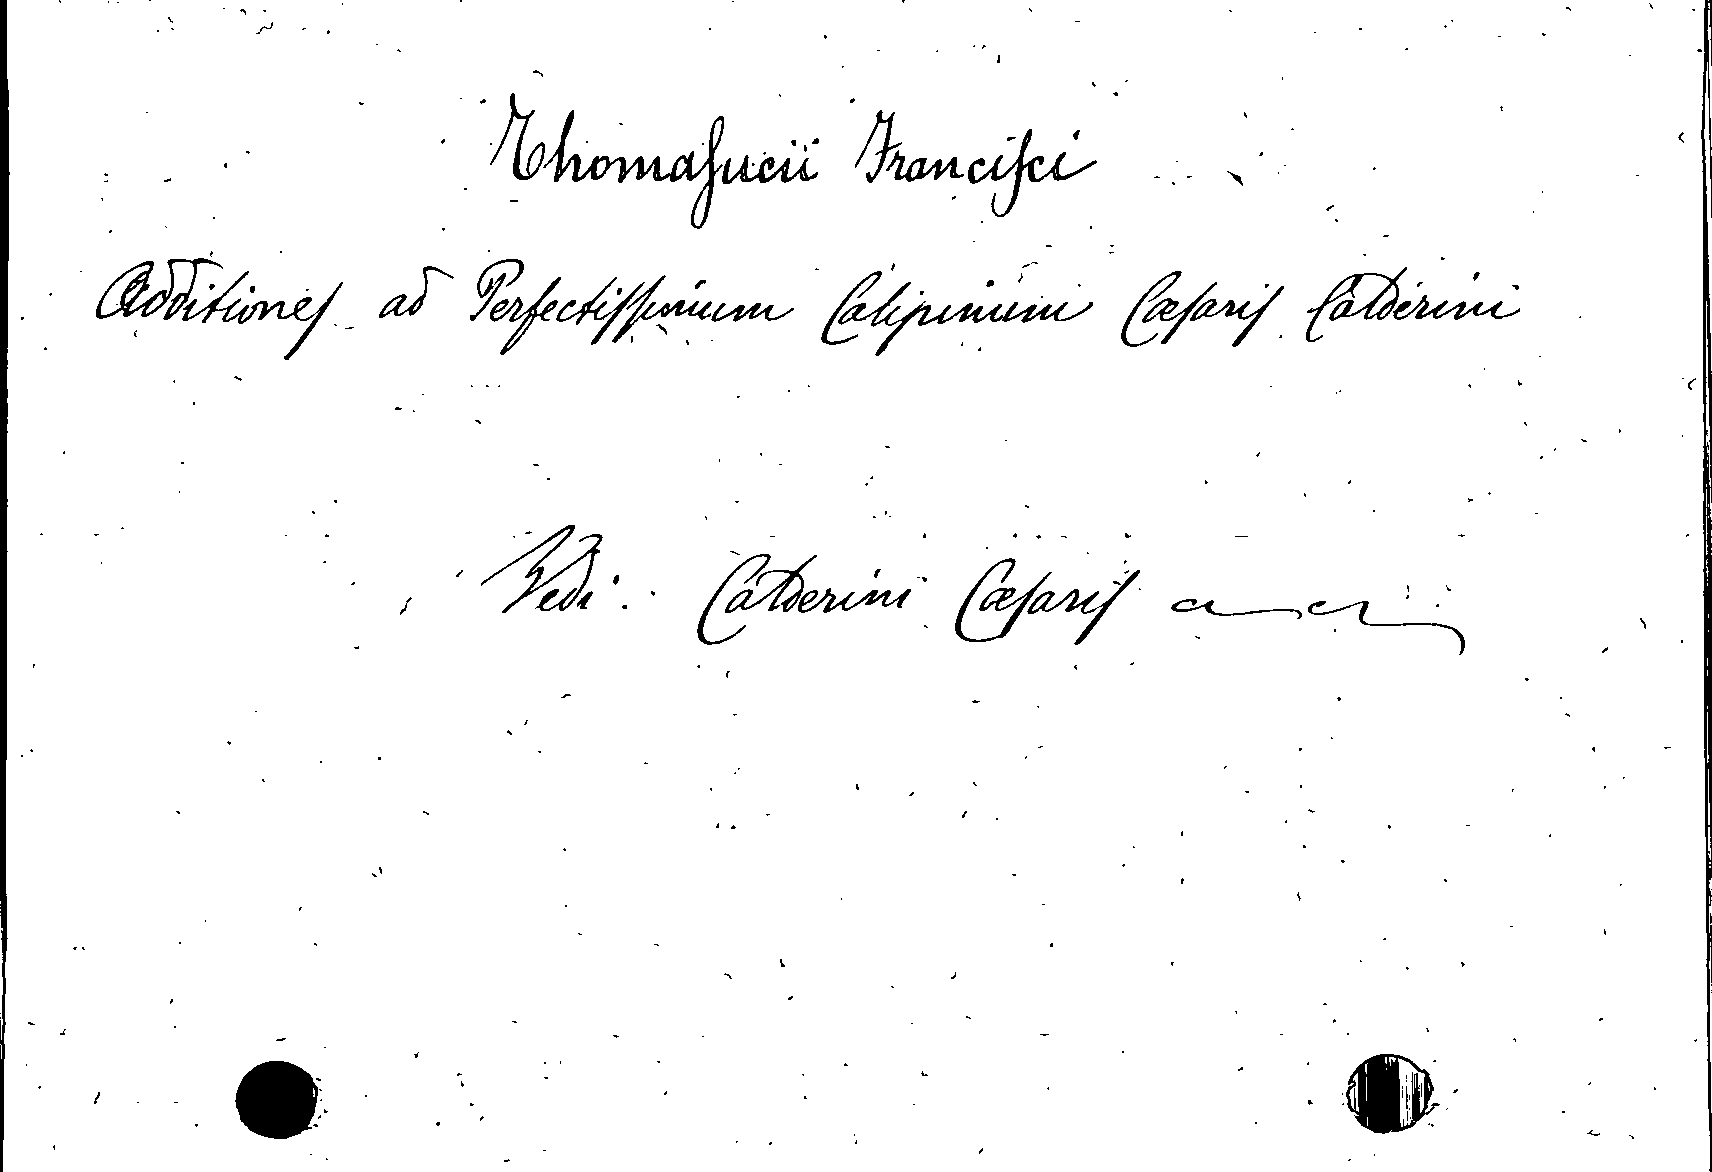 Thomaſucii Franciſci
Additioneſ ad Perfectiſſimum Calipinum Cæſariſ Calderini
Vedi: Calderini Cæſariſ